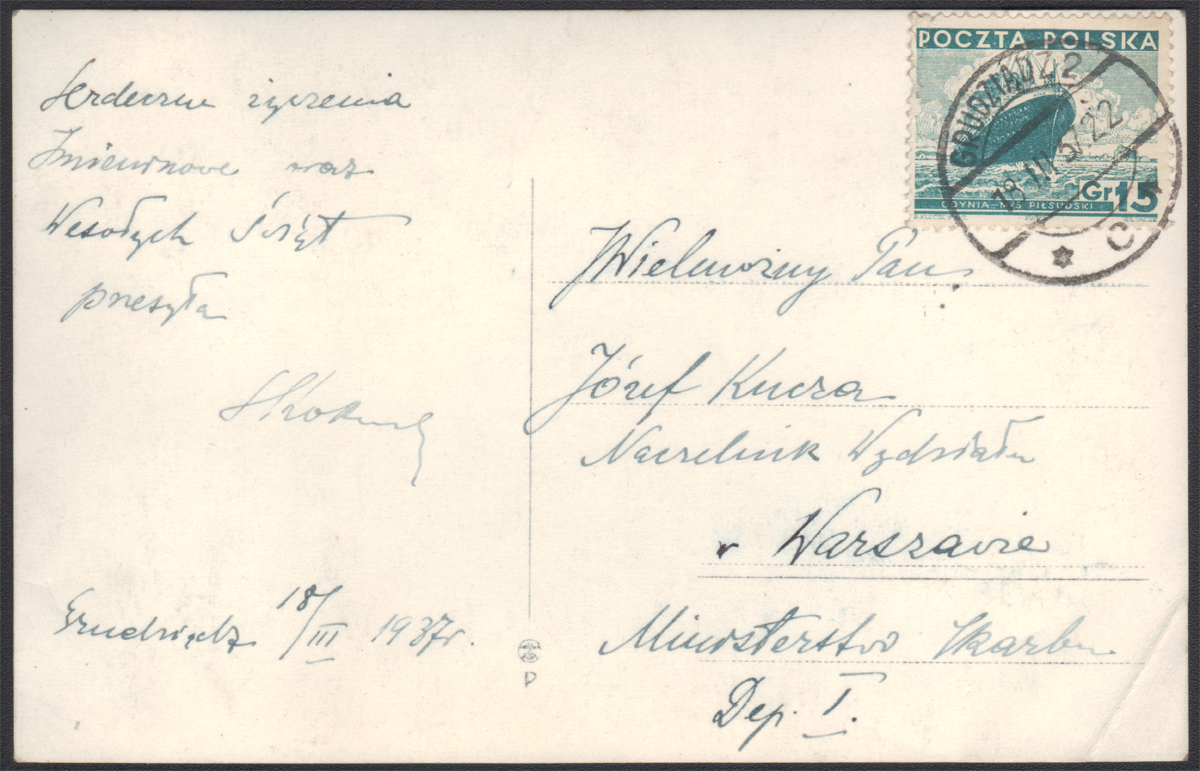 Serdeczne życzenia
Imieninowe oraz
Wesołych Świąt
przesyła
Grudziądz 18/III 1937r.
POCZTA POLSKA
Gr 15
GDYNIA-M/S PIŁSUDSKI
GRUDZIĄDZ 2
18 III 37.22
* C
JWielmożny Pan
Józef Kucza
Naczelnik Wydziału
w Warszawie
Ministerstwo Skarbu
Dep. I.
P